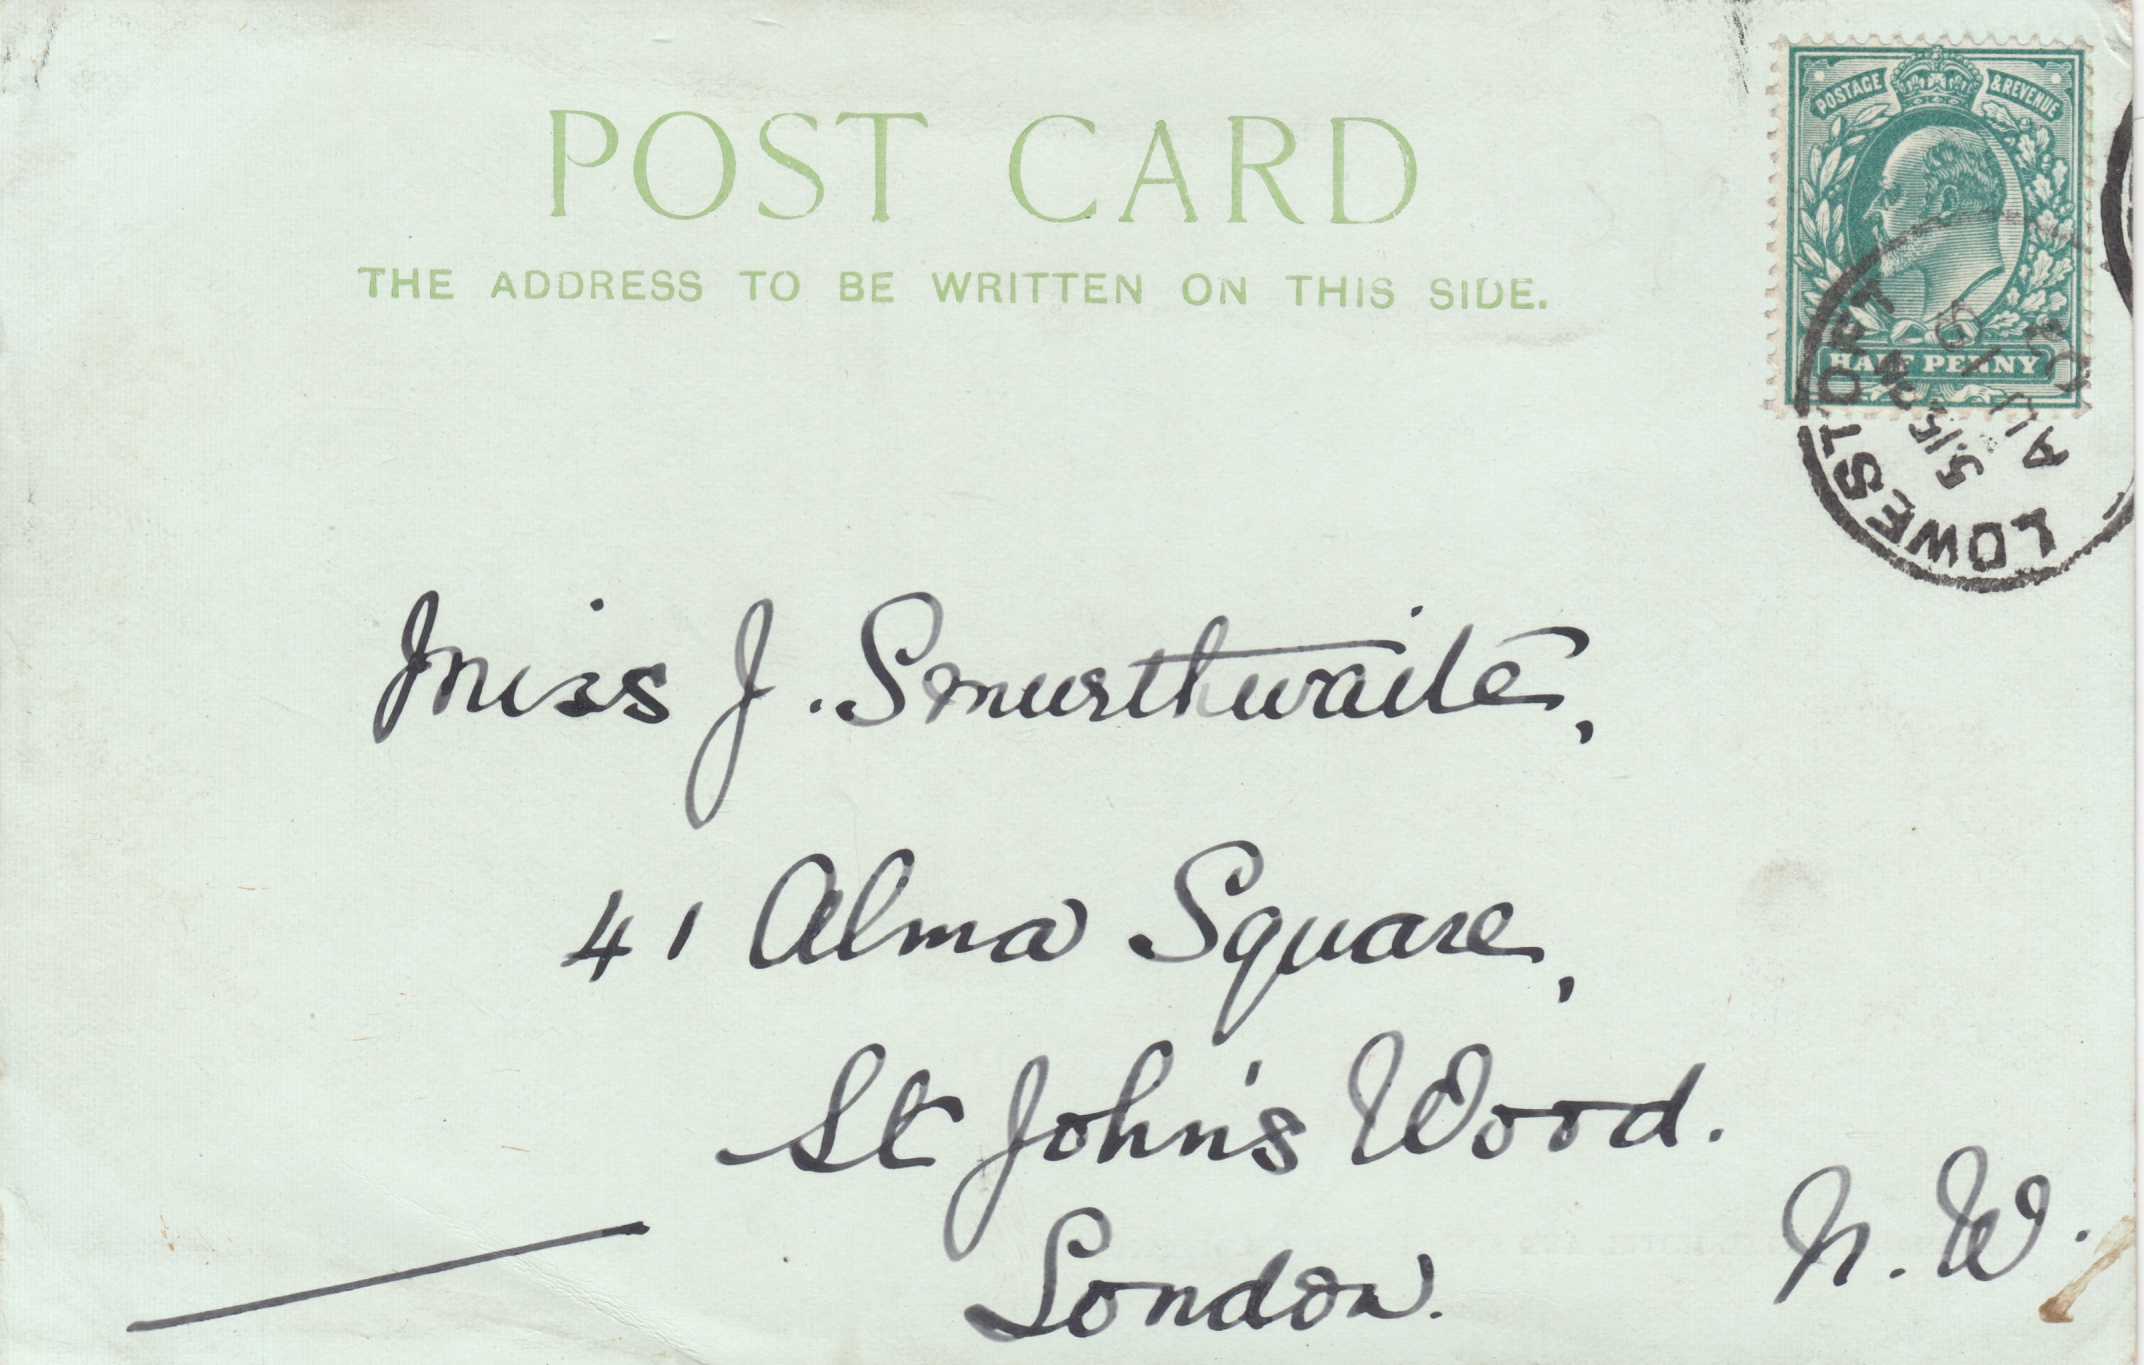 POST CARD
THE ADDRESS TO BE WRITTEN ON THIS SIDE.
POSTAGE & REVENUE
HALF PENNY
LOWESTOFT
5.15 PM
AU 1
Miss J. Smurthwaite,
41 Alma Square,
St John's Wood.
London. N.W.